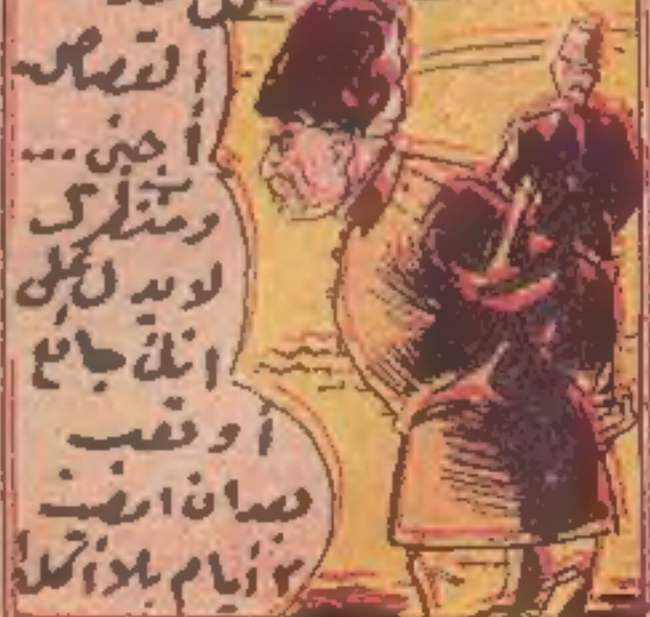 القصاص
أجبني...
ومنظرك
لا يدل على
انك جائع
أو تعب
بعد ان امضيت
٣ أيام بلا أكل